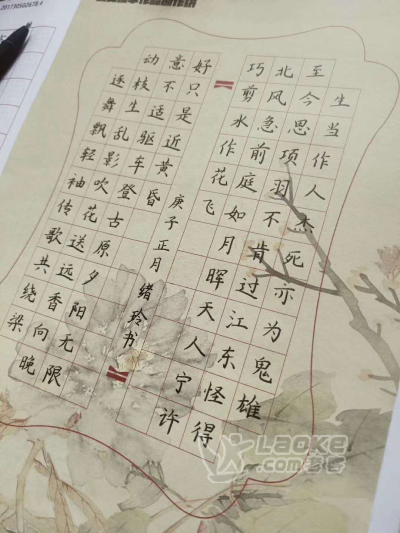 生当作人杰死亦为鬼雄
至今思项羽不肯过江东怪得
北风急前庭如月晖天人宁许
巧剪水作花飞
好只是近黄昏
庚子正月
绪玲书
意不适驱车登古原夕阳无限
动枝生乱影吹花送远香向晚
逐舞飘轻袖传歌共绕梁
LAOKE
.com